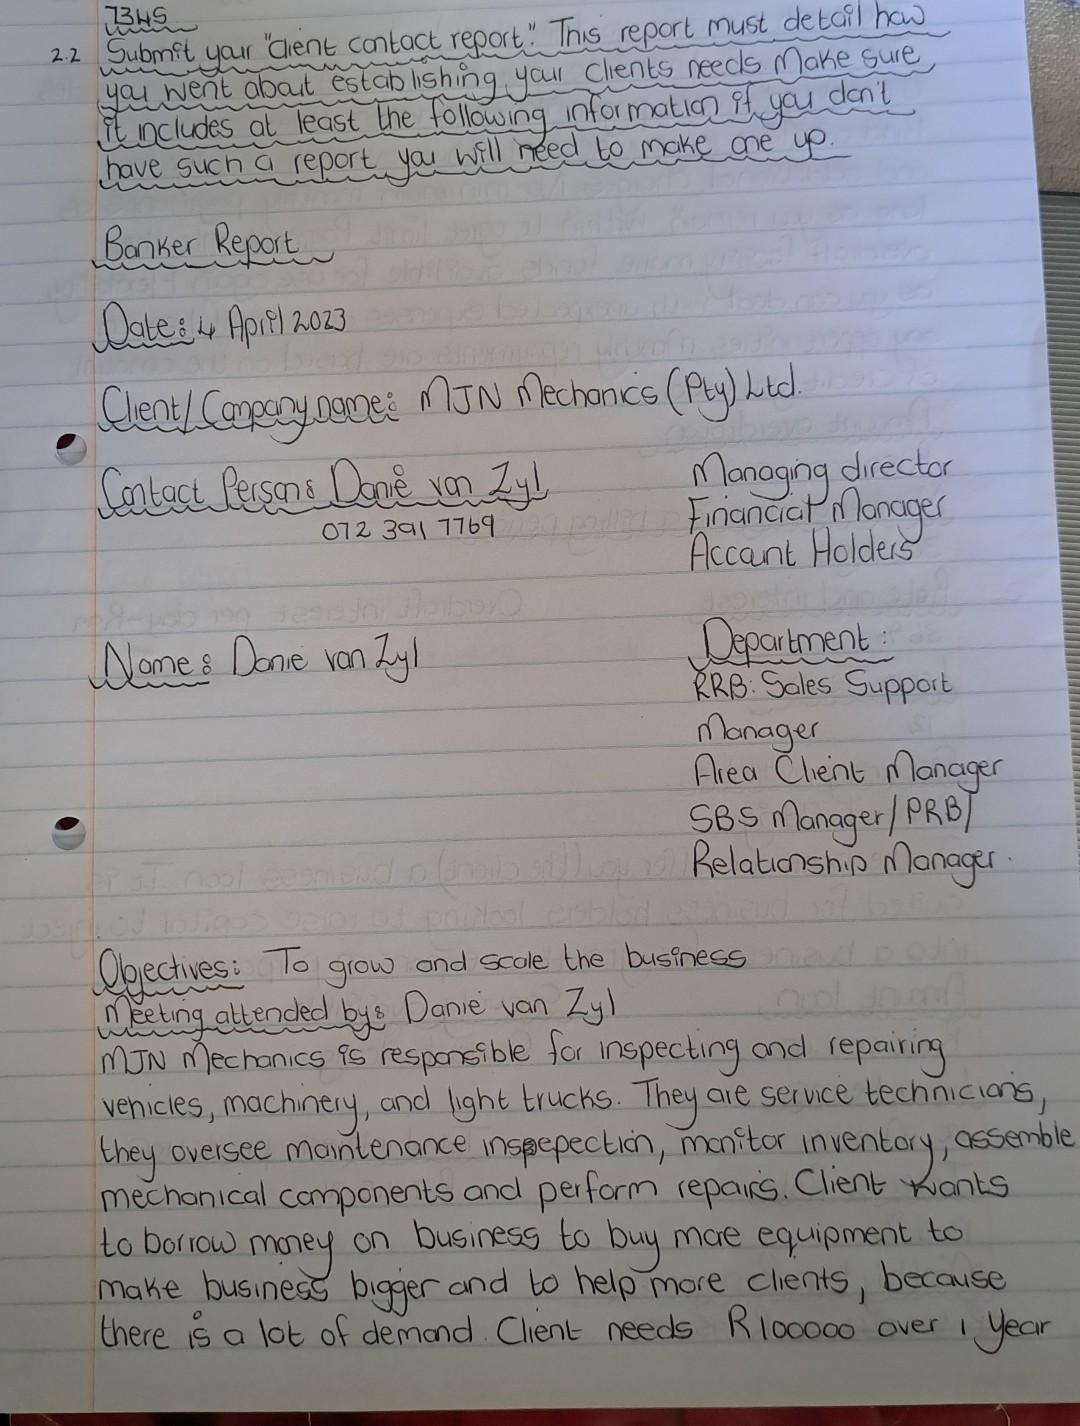 7345
2.2 Submit your "client contact report". This report must detail how
you went about establishing your clients needs. Make sure
it includes at least the following information if you don't
have such a report you will need to make one up.
Banker Report
Date: 4 April 2023
Client/Company name: MJN Mechanics (Pty) Ltd.
Contact Person: Danie van Zyl Managing director
072 391 7769 Financial Manager
Account Holders
Name: Danie van Zyl Department:
RRB: Sales Support
Manager
Area Client Manager
SBS Manager/PRB/
Relationship Manager.
Objectives: To grow and scale the business
Meeting attended by: Danie van Zyl
MJN Mechanics is responsible for inspecting and repairing
vehicles, machinery, and light trucks. They are service technicians,
they oversee maintenance inspepection, monitor inventory, assemble
mechanical components and perform repairs. Client wants
to borrow money on business to buy more equipment to
make business bigger and to help more clients, because
there is a lot of demand. Client needs R100000 over 1 year